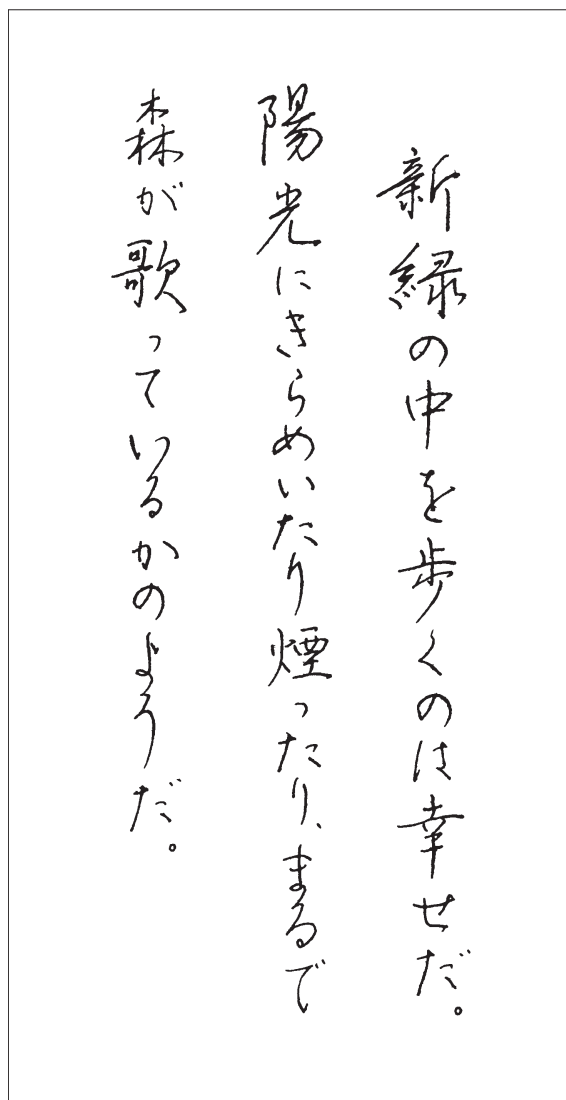 新緑の中を歩くのは幸せだ。
陽光にきらめいたり煙ったり、まるで
森が歌っているかのようだ。